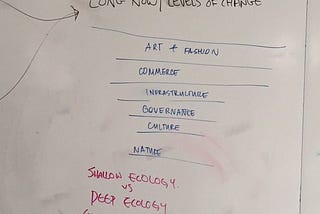 LONG NOW / LEVELS OF CHANGE
ART + FASHION
COMMERCE
INFRASTRUCTURE
GOVERNANCE
CULTURE
NATURE
SHALLOW ECOLOGY
VS
DEEP ECOLOGY